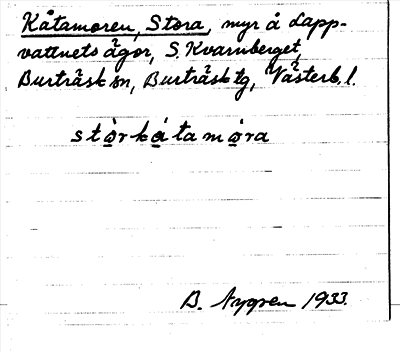 Kåtamoren, Stora, myr å Lapp-
vattnets ägor, S. Kvarnberget,
Burträsk sn, Burträsk tg, Västerb. l.
stò̱rká̱tamò̱ra
B. Nygren 1933.